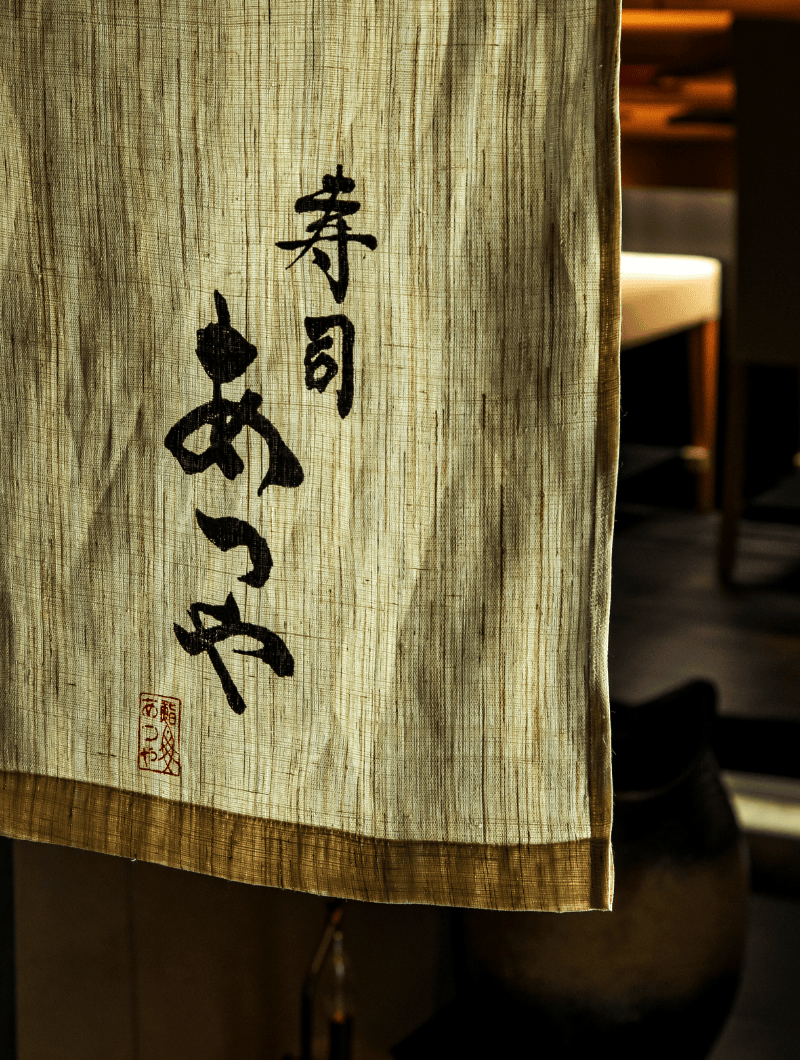 寿司
あつや
鮨
あつや